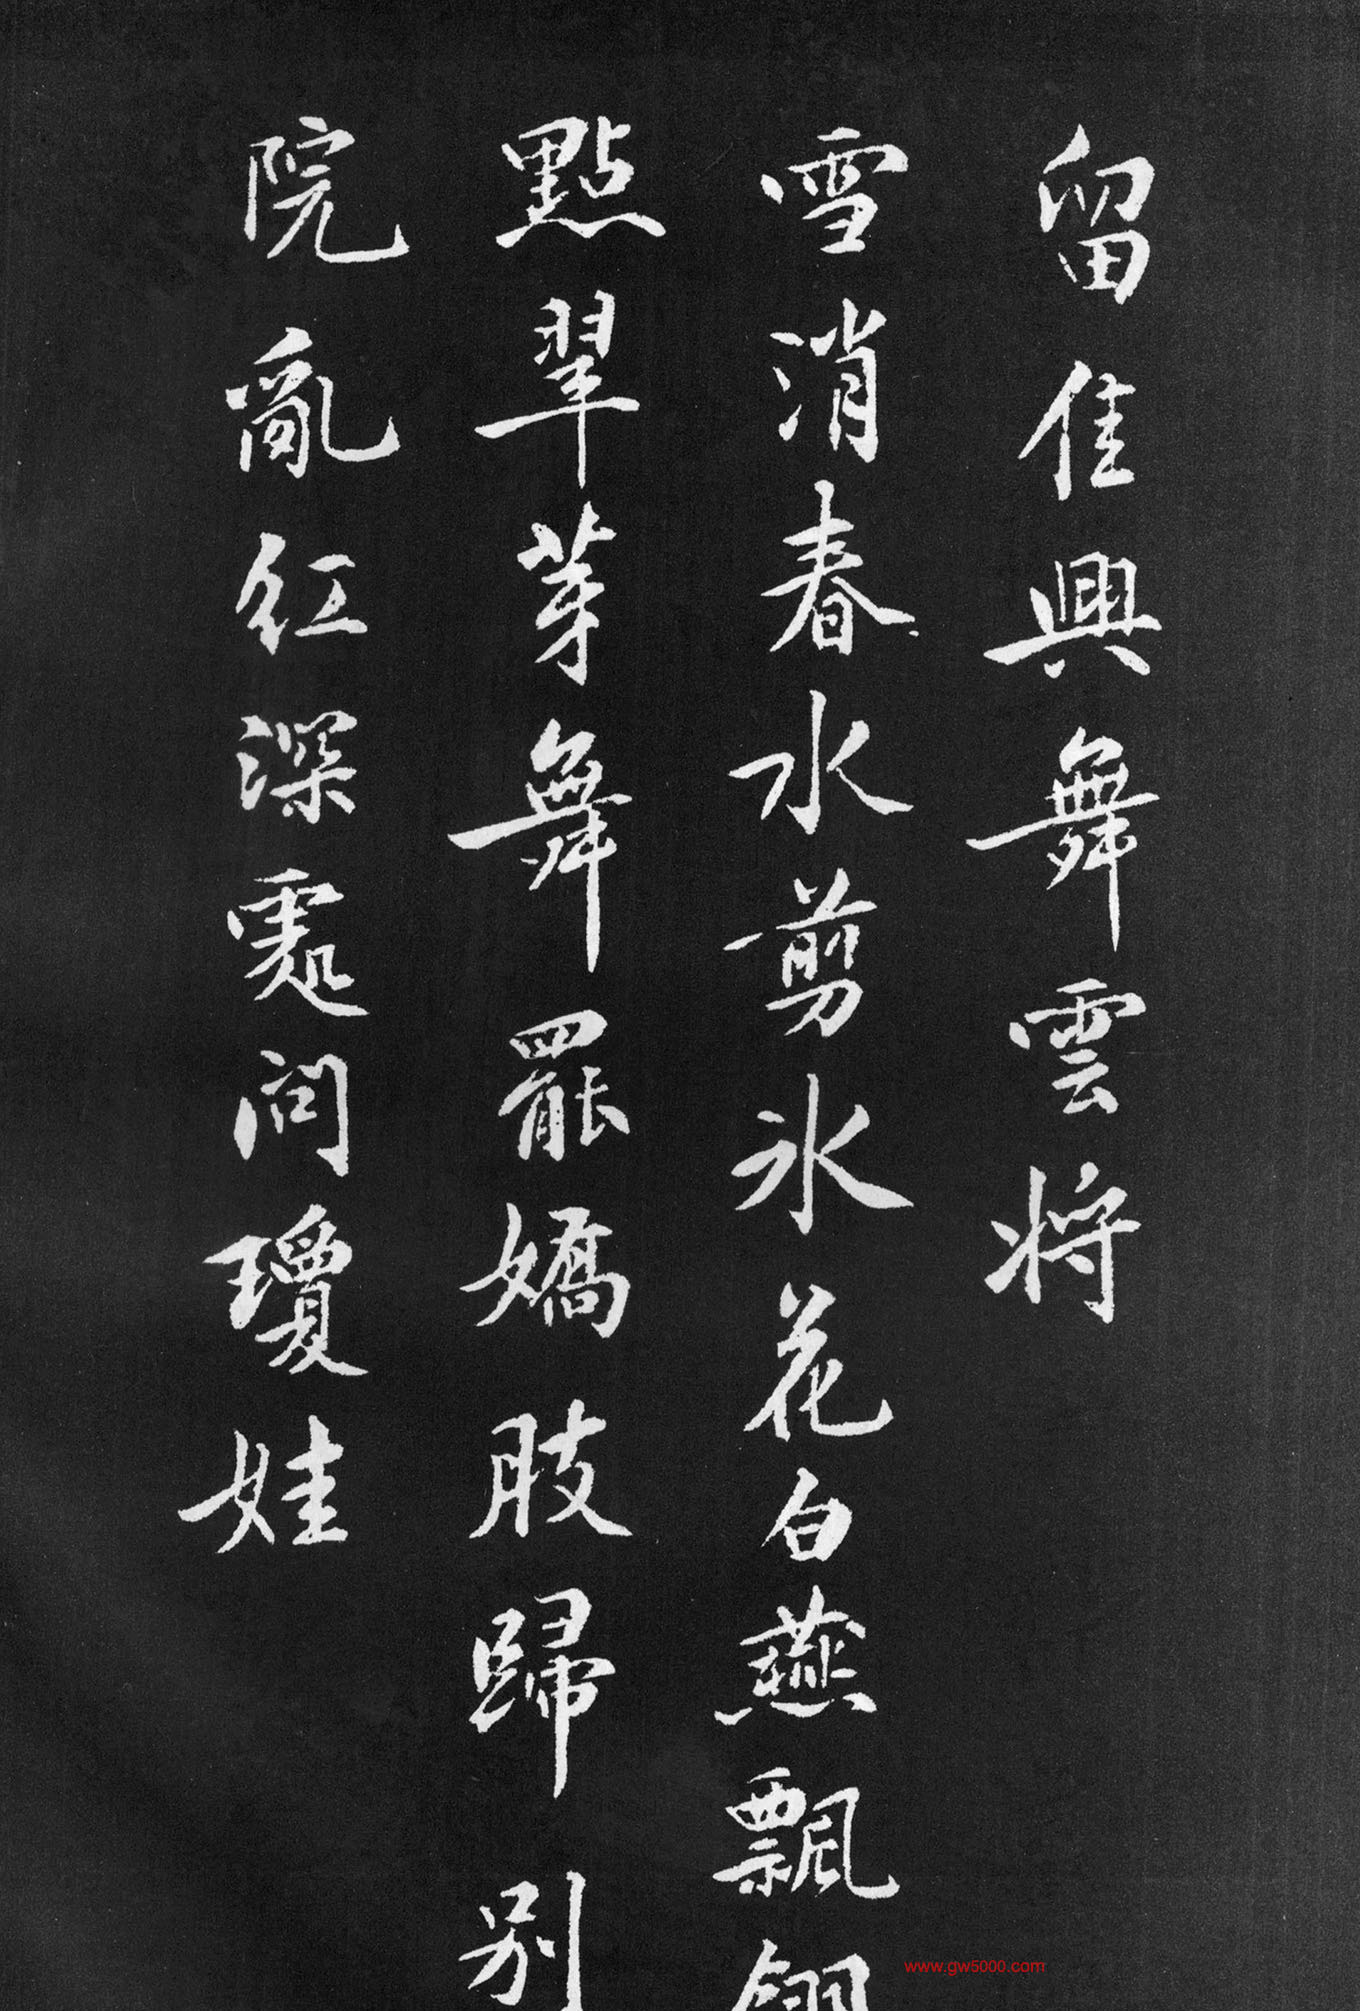 留佳興舞雲將
雪消春水剪氷花白燕飄翎
點翠芽舞罷嬌肢歸别
院亂紅深處問瓊娃
www.gw5000.com